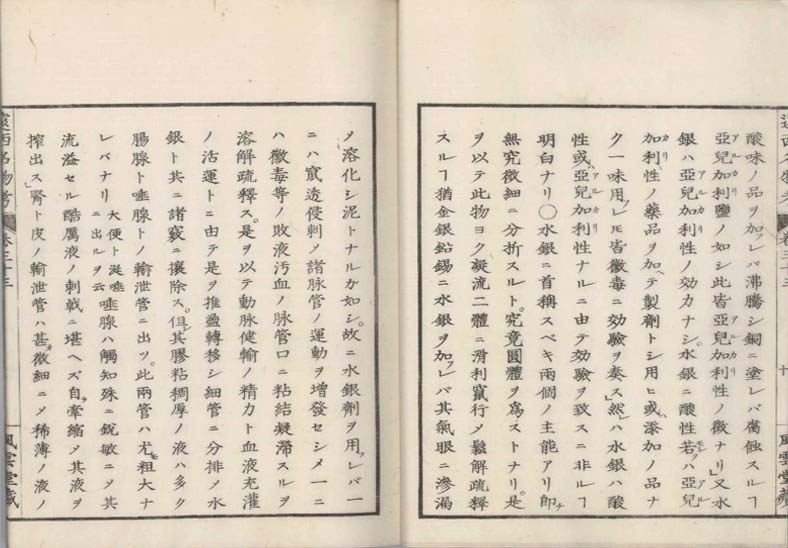 遠西名物考 卷三十三 十 風雲堂藏
酸味ノ品ヲ加フレバ沸騰シ銅ニ塗レバ腐蝕スルヿ
亞兒加利鹽ノ如シ此皆亞兒加利性ノ徴ナリ」又水
銀ハ亞兒加利性ノ効力ナシ。水銀ニ酸性若クハ亞兒
加利性ノ藥品ヲ加ヘテ製劑トシ用ヒ或ハ添加ノ品ナ
ク一味用フレ𪜈皆黴毒ニ効驗ヲ奏ス」然レハ水銀ハ酸
性或ハ亞兒加利性ナルニ由テ効驗ヲ致スニ非ルヿ
明白ナリ〇水銀ニ首稱スベキ兩個ノ主能アリ即チ
無究微細ニ分折スルト。究竟圓體ヲ爲ストナリ。是
ヲ以テ此物ヨク凝流二體ニ滑利竄行メ鬆解疏釋
スルヿ猶金銀鉛錫ニ水銀ヲ加フレバ其氣眼ニ滲漏
メ溶化シ泥トナルカ如シ。故ニ水銀劑ヲ用フレバ一
ニハ竄透侵刺メ諸脉管ノ運動ヲ增發セシメ一ニ
ハ黴毒等ノ敗液汚血ノ脉管口ニ粘結凝滯スルヲ
溶解疏釋ス。是ヲ以テ動脉健輸ノ精力ト血液充灌
ノ活運トニ由テ是ヲ推盈轉移シ細管ニ分排メ水
銀ト共ニ諸竅ニ攘除ス。但其膠粘稠厚ノ液ハ多ク
腸腺ト唾腺トノ輸泄管ニ出ツ。此兩管ハ尤モ粗大ナ
レバナリ 大便ト涎唾ニ出ルヲ云 唾腺ハ觸知殊ニ銳敏ニメ其
流溢セル酷厲液ノ刺戟ニ堪ヘズ自ラ牽縮メ其液ヲ
搾出ス」腎ト皮ノ輸泄管ハ甚タ微細ニメ稀薄ノ液ノ
遠西名物考 卷三十三 風雲堂藏